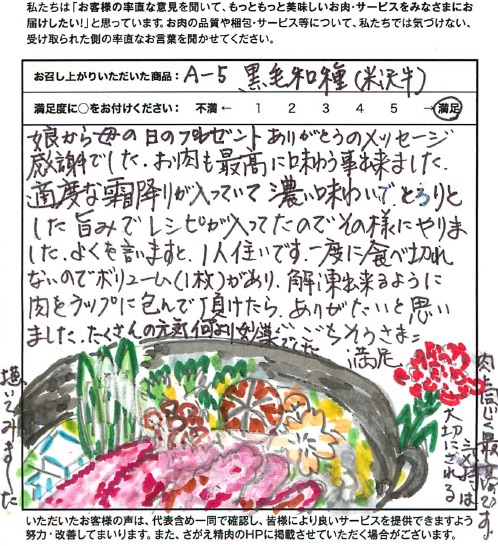 私たちは「お客様の率直な意見を聞いて、もっともっと美味しいお肉・サービスをみなさまにお
届けしたい!」と思っています。お肉の品質や梱包・サービス等について、私たちでは気づけない、
受け取られた側の率直なお言葉を聞かせてください。
お召し上がりいただいた商品: A-5 黒毛和種(米沢牛)
満足度に○をお付けください: 不満 ← 1 2 3 4 5 → 満足
娘から母の日のプレゼント ありがとうのメッセージ
感謝でした。お肉も最高に味わう事出来ました。
適度な霜降りが入っていて 濃い味わいでとろりと
した旨みでレシピが入ってたのでその様にやりま
した。よくを言いますと、1人住いです。一度に食べ切れ
ないのでボリューム(1枚)があり、解凍出来るように
肉をラップに包んで頂けたら、ありがたいと思い
ました。たくさんの元気何より ごちそうさま
満足
肉も同じく最高です
大切にされる
描いてみました
いただいたお客様の声は、代表含め一同で確認し、皆様により良いサービスを提供できますよう
努力・改善してまいります。また、さがえ精肉のHPに掲載させていただく場合がございます。